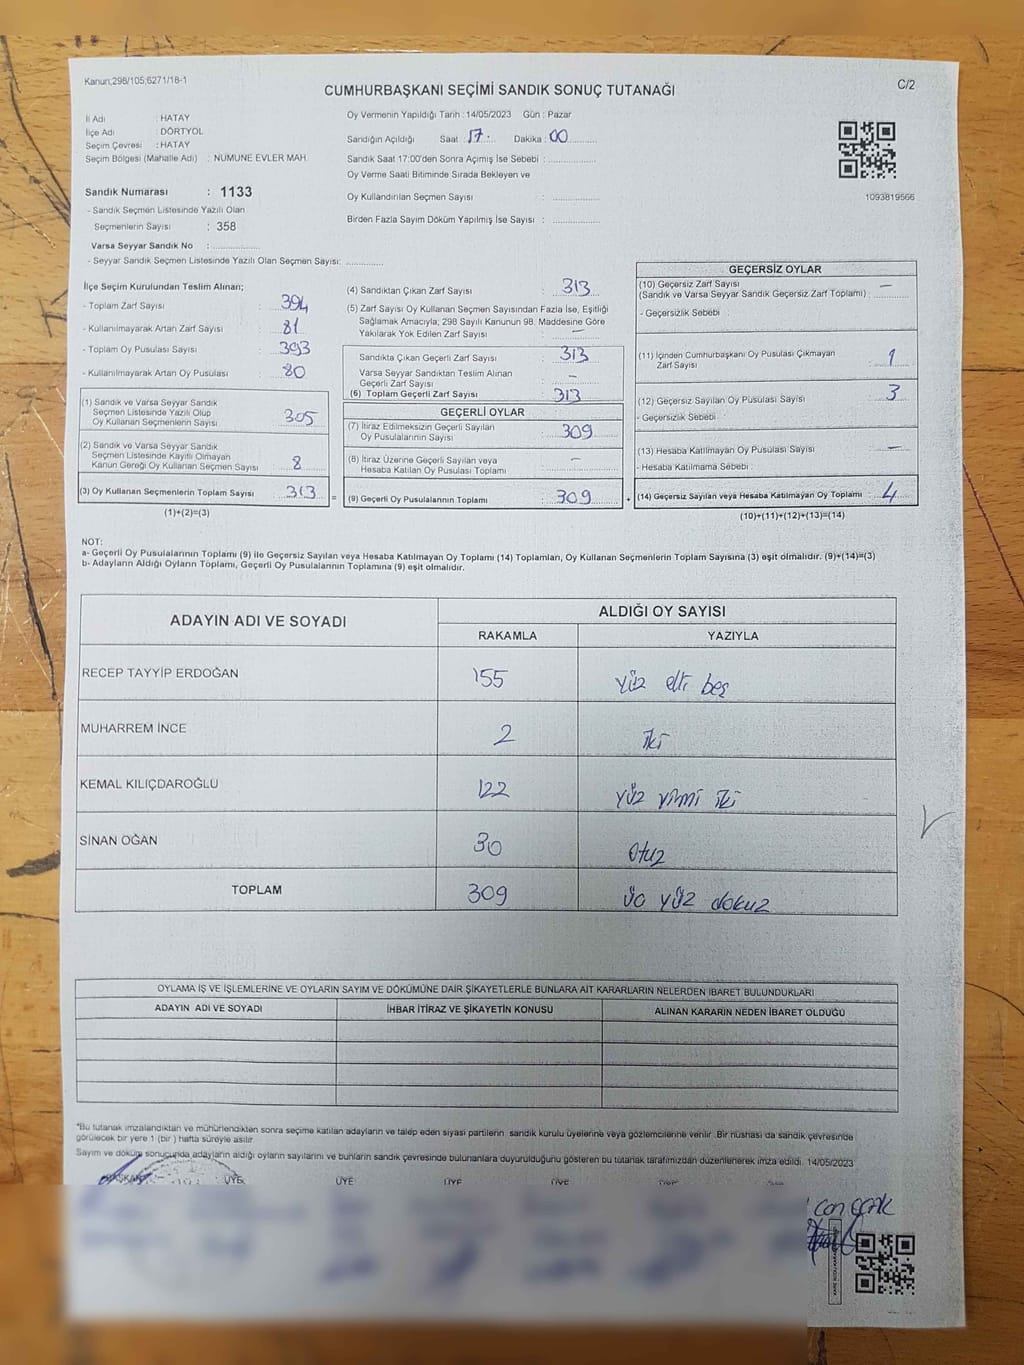 Kanun;298/105,6271/18-1
C/2
CUMHURBAŞKANI SEÇİMİ SANDIK SONUÇ TUTANAĞI
İl Adı : HATAY
İlçe Adı : DÖRTYOL
Seçim Çevresi : HATAY
Seçim Bölgesi (Mahalle Adı) : NUMUNE EVLER MAH.
Sandık Numarası : 1133
- Sandık Seçmen Listesinde Yazılı Olan
Seçmenlerin Sayısı : 358
Varsa Seyyar Sandık No : ................
- Seyyar Sandık Seçmen Listesinde Yazılı Olan Seçmen Sayısı: ............
Oy Vermenin Yapıldığı Tarih : 14/05/2023 Gün : Pazar
Sandığın Açıldığı Saat 17 Dakika : 00
Sandık Saat 17:00'den Sonra Açımış İse Sebebi : ................
Oy Verme Saati Bitiminde Sırada Bekleyen ve
Oy Kullandırılan Seçmen Sayısı : ................
Birden Fazla Sayım Döküm Yapılmış İse Sayısı : ................
1093819566
İlçe Seçim Kurulundan Teslim Alınan;
- Toplam Zarf Sayısı : 394
- Kullanılmayarak Artan Zarf Sayısı : 81
- Toplam Oy Pusulası Sayısı : 393
- Kullanılmayarak Artan Oy Pusulası : 80
(1) Sandık ve Varsa Seyyar Sandık
Seçmen Listesinde Yazılı Olup
Oy Kullanan Seçmenlerin Sayısı : 305
(2) Sandık ve Varsa Seyyar Sandık
Seçmen Listesinde Kayıtlı Olmayan
Kanun Gereği Oy Kullanan Seçmen Sayısı : 8
(3) Oy Kullanan Seçmenlerin Toplam Sayısı : 313 =
(1)+(2)=(3)
(4) Sandıktan Çıkan Zarf Sayısı : 313
(5) Zarf Sayısı Oy Kullanan Seçmen Sayısından Fazla İse, Eşitliği
Sağlamak Amacıyla, 298 Sayılı Kanunun 98. Maddesine Göre
Yakılarak Yok Edilen Zarf Sayısı : —
Sandıkta Çıkan Geçerli Zarf Sayısı : 313
Varsa Seyyar Sandıktan Teslim Alınan
Geçerli Zarf Sayısı : —
(6) Toplam Geçerli Zarf Sayısı : 313
GEÇERLİ OYLAR
(7) İtiraz Edilmeksizin Geçerli Sayılan
Oy Pusulalarının Sayısı : 309
(8) İtiraz Üzerine Geçerli Sayılan veya
Hesaba Katılan Oy Pusulası Toplamı : —
(9) Geçerli Oy Pusulalarının Toplamı : 309 +
GEÇERSİZ OYLAR
(10) Geçersiz Zarf Sayısı —
(Sandık ve Varsa Seyyar Sandık Geçersiz Zarf Toplamı) :
- Geçersizlik Sebebi
(11) İçinden Cumhurbaşkanı Oy Pusulası Çıkmayan
Zarf Sayısı : 1
(12) Geçersiz Sayılan Oy Pusulası Sayısı : 3
- Geçersizlik Sebebi
(13) Hesaba Katılmayan Oy Pusulası Sayısı : —
- Hesaba Katılmama Sebebi :
(14) Geçersiz Sayılan veya Hesaba Katılmayan Oy Toplamı : 4
(10)+(11)+(12)+(13)=(14)
NOT:
a- Geçerli Oy Pusulalarının Toplamı (9) ile Geçersiz Sayılan veya Hesaba Katılmayan Oy Toplamı (14) Toplamları, Oy Kullanan Seçmenlerin Toplam Sayısına (3) eşit olmalıdır. (9)+(14)=(3)
b- Adayların Aldığı Oyların Toplamı, Geçerli Oy Pusulalarının Toplamına (9) eşit olmalıdır.
ADAYIN ADI VE SOYADI
ALDIĞI OY SAYISI
RAKAMLA YAZIYLA
RECEP TAYYİP ERDOĞAN 155 yüz elli beş
MUHARREM İNCE 2 iki
KEMAL KILIÇDAROĞLU 122 yüz yirmi iki
SİNAN OĞAN 30 otuz
TOPLAM 309 üç yüz dokuz
OYLAMA İŞ VE İŞLEMLERİNE VE OYLARIN SAYIM VE DÖKÜMÜNE DAİR ŞİKAYETLERLE BUNLARA AİT KARARLARIN NELERDEN İBARET BULUNDUKLARI
ADAYIN ADI VE SOYADI İHBAR İTİRAZ VE ŞİKAYETİN KONUSU ALINAN KARARIN NEDEN İBARET OLDUĞU
*Bu tutanak imzalandıktan ve mühürlendikten sonra seçime katılan adayların ve talep eden siyasi partilerin sandık kurulu üyelerine veya gözlemcilerine verilir. Bir nüshası da sandık çevresinde
görülecek bir yere 1 (bir) hafta süreyle asılır.
Sayım ve döküm sonucunda adayların aldığı oyların sayılarını ve bunların sandık çevresinde bulunanlara duyurulduğunu gösteren bu tutanak tarafımızdan düzenlenerek imza edildi. 14/05/2023
BAŞKAN ÜYE ÜYE ÜYE ÜYE